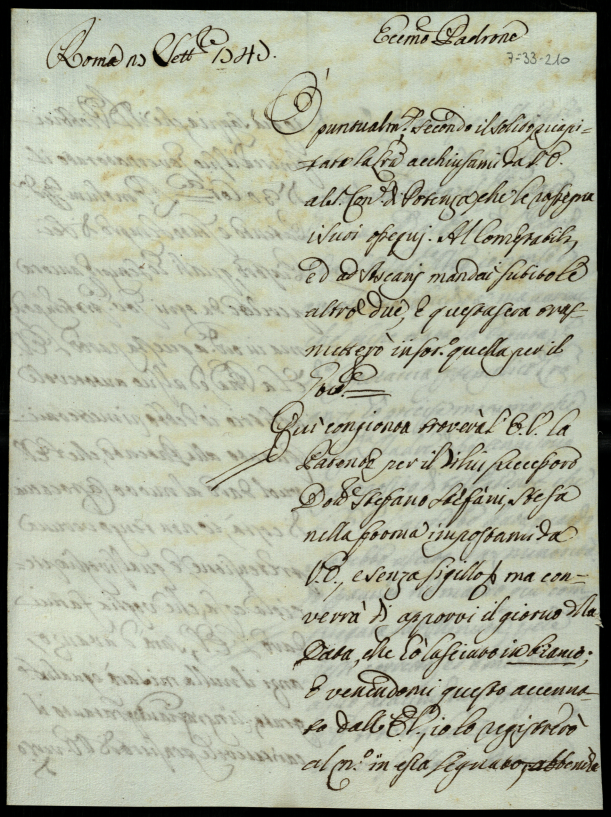 Eccmo Padrone
Roma 13 Settre 1741.
7-33-210
È puntualmte secondo il solito ricapi=
tata la fra acchiusami da V.E.
al S. Con. di Potenza, che le rassegna
i suoi ossequj. Al
ed ad Ascanj mandai subito le
altre due, e questa sera tras=
metterò in for. quella per il
Gove.
Qui congionta troverà l'E.V. la
Patente per il di lui successore
Dotre Stefano Stefani, stesa
nella forma impostami da
V.E., e senza sigillo, ma con=
verrà di apporvi il giorno della
Data, che hò lasciato in bianco;
E venendomi questo accenna=
to dall'E.V., io lo registrerò
al n.o in essa segnato,